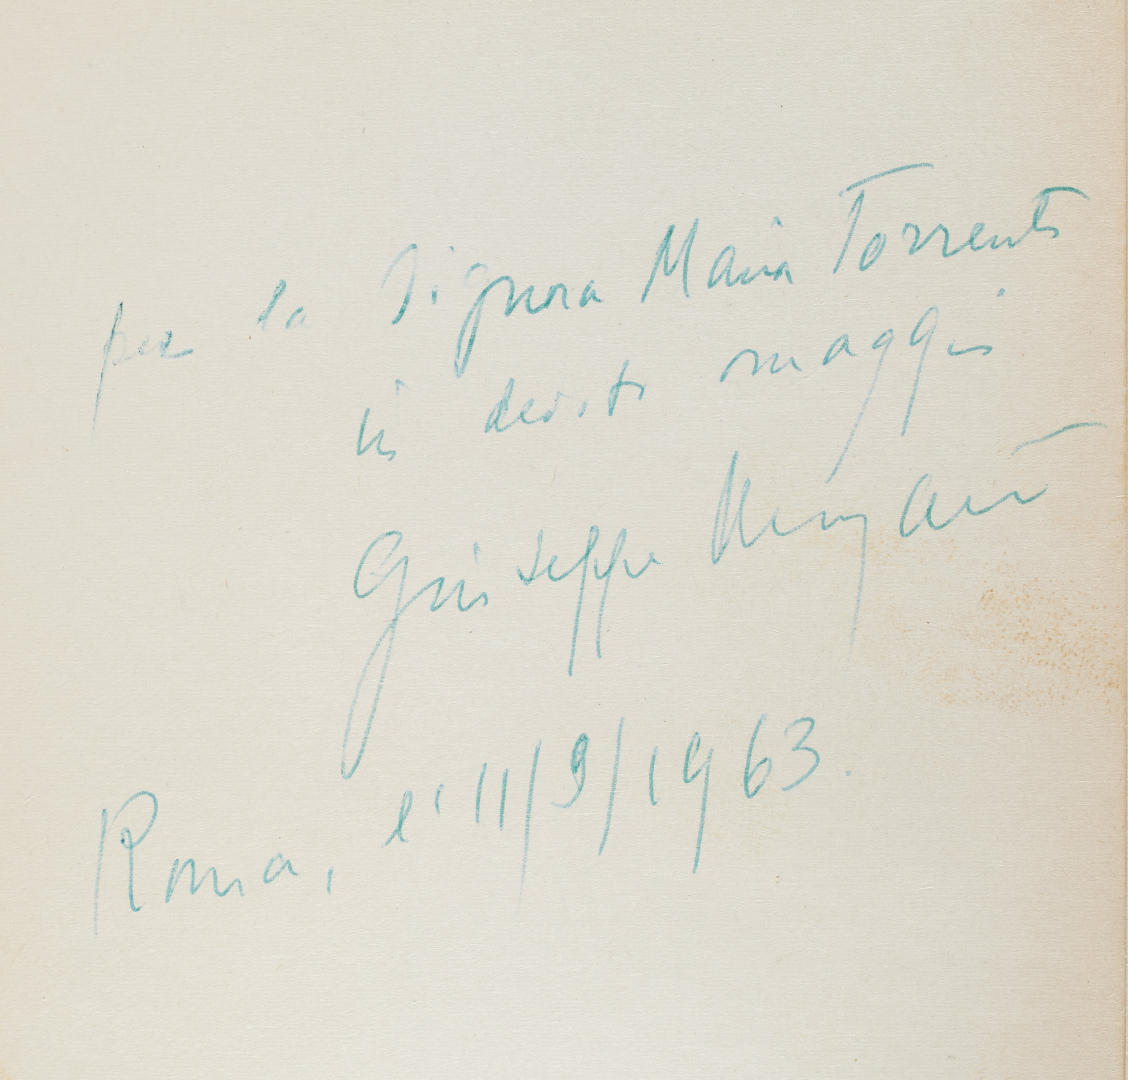 per la Signora Maria Torrents
in devoto omaggio
Giuseppe Ungaretti
Roma, l'11/9/1963.